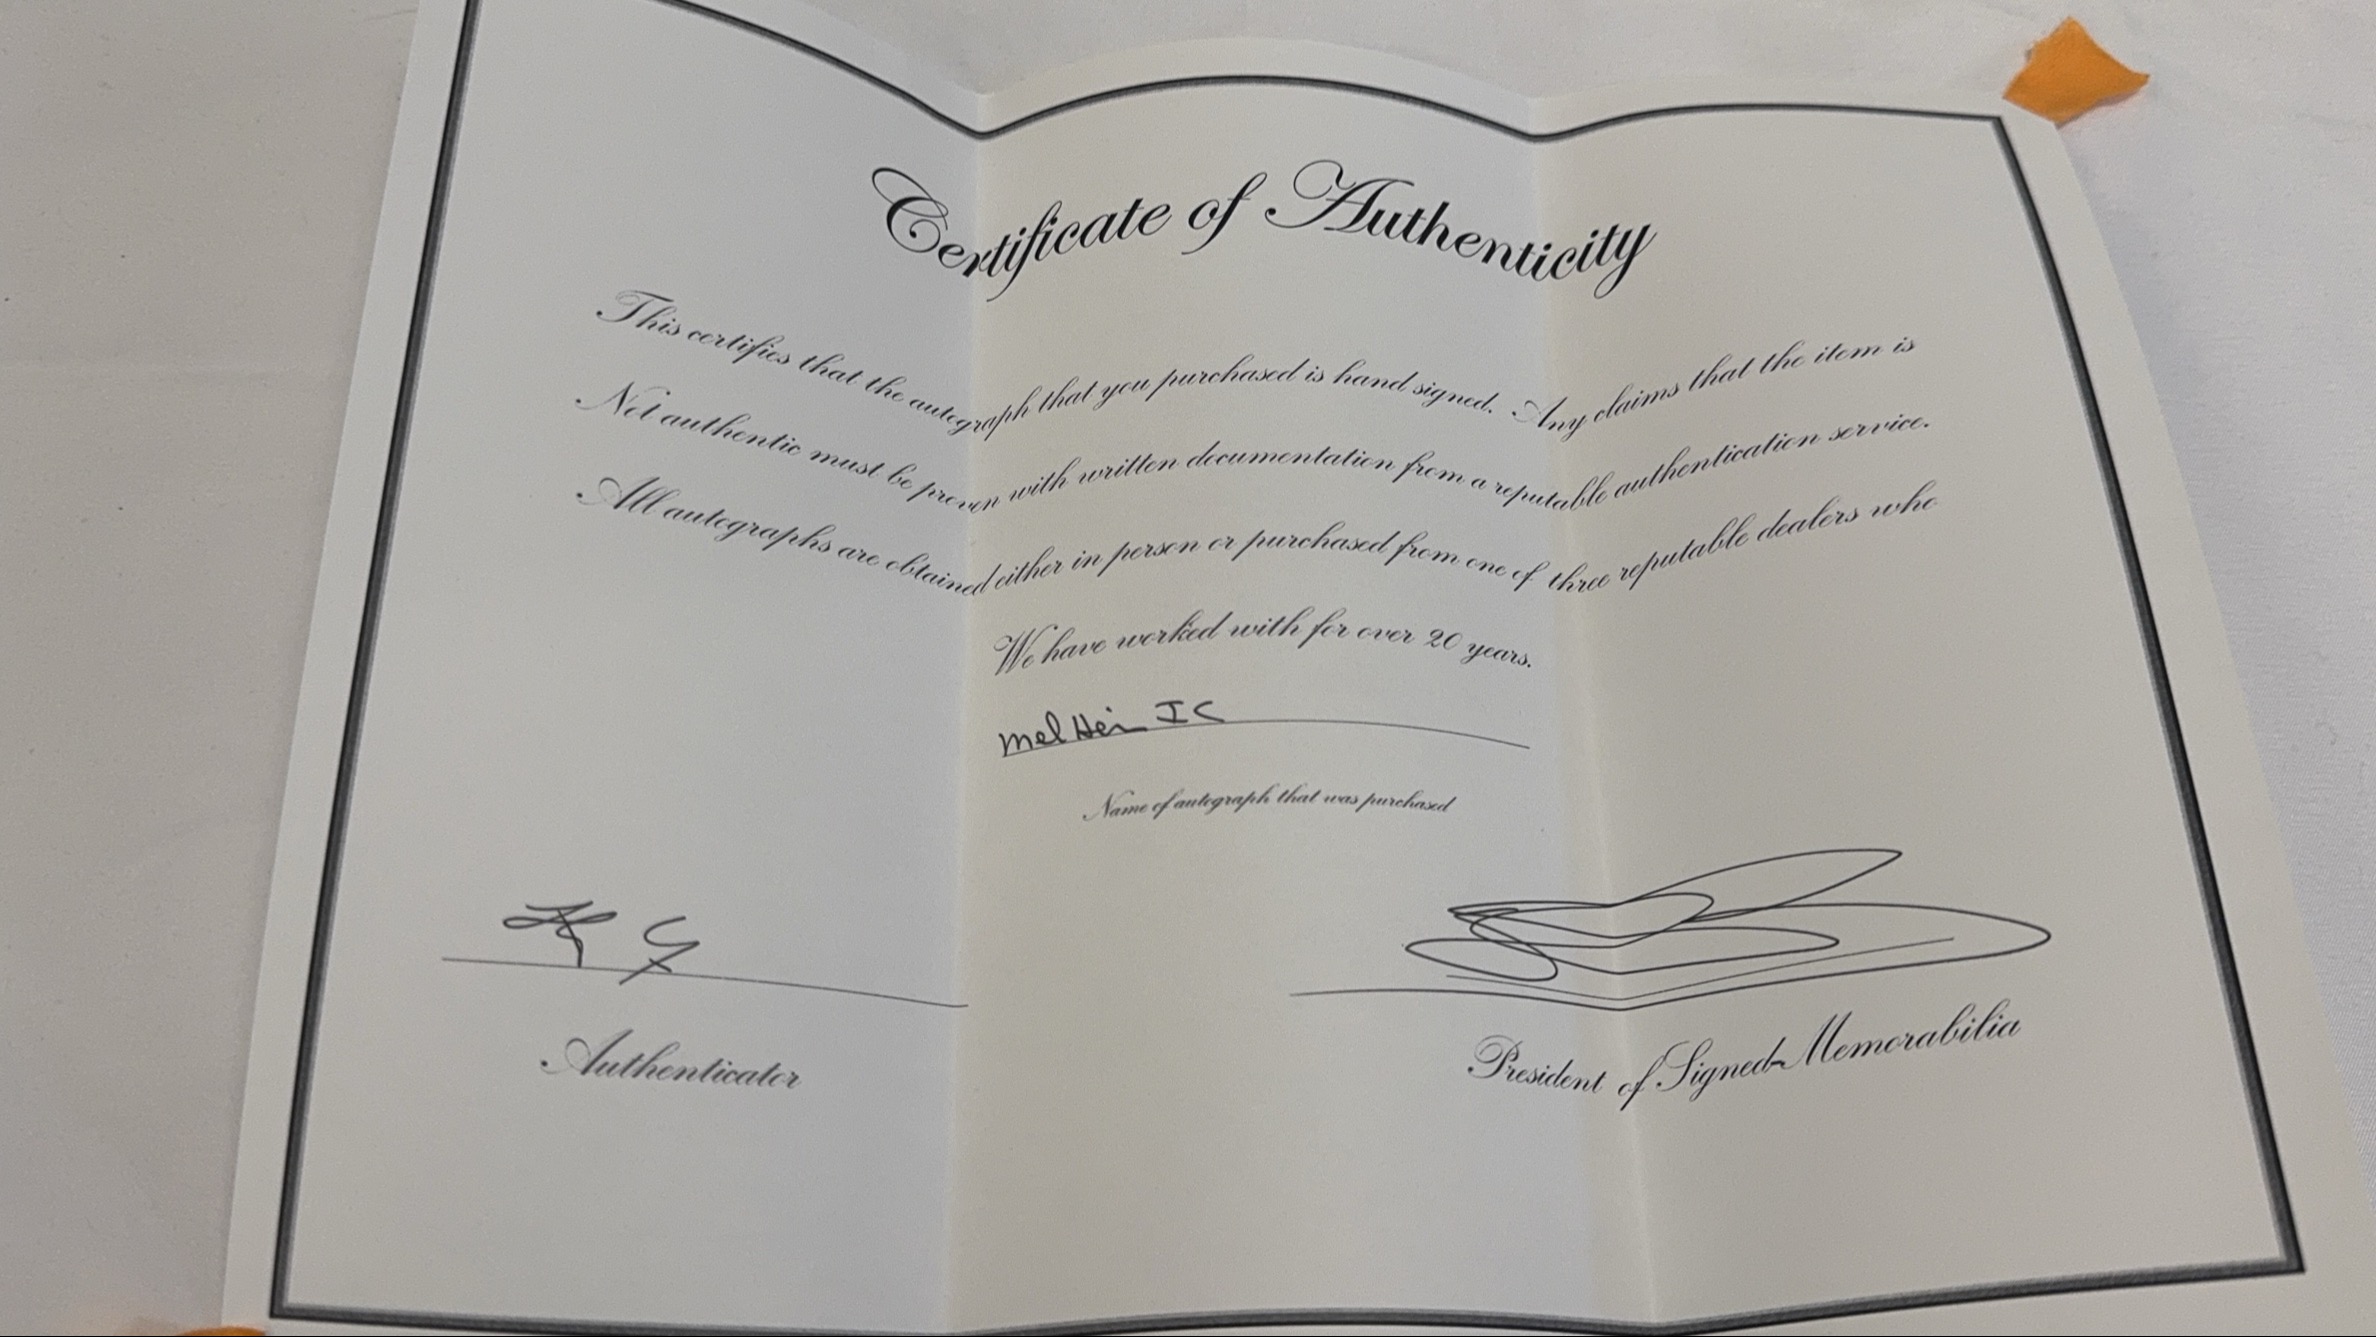 Certificate of Authenticity
This certifies that the autograph that you purchased is hand signed. Any claims that the item is
Not authentic must be proven with written documentation from a reputable authentication service.
All autographs are obtained either in person or purchased from one of three reputable dealers who
We have worked with for over 20 years.
Mel Hein IC
Name of autograph that was purchased
Authenticator
President of Signed-Memorabilia